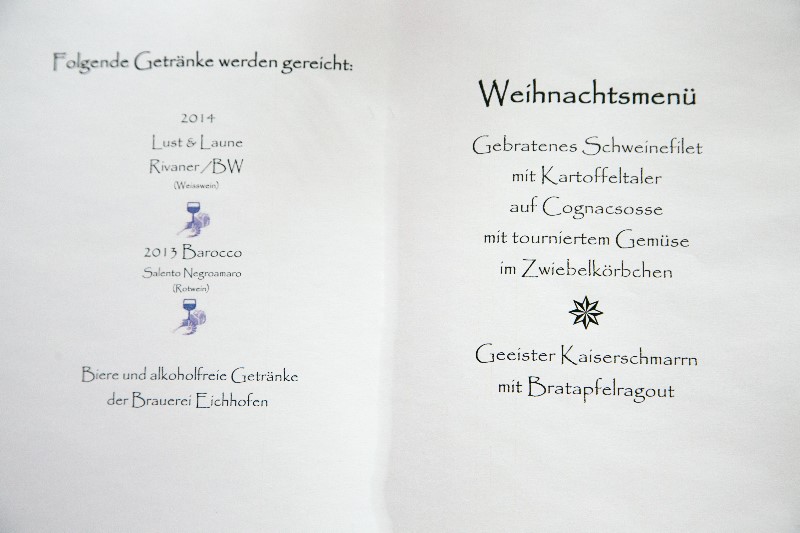 Folgende Getränke werden gereicht:
2014
Lust & Laune
Rivaner /BW
(Weisswein)
2013 Barocco
Salento Negroamaro
(Rotwein)
Biere und alkoholfreie Getränke
der Brauerei Eichhofen
Weihnachtsmenü
Gebratenes Schweinefilet
mit Kartoffeltaler
auf Cognacsosse
mit tourniertem Gemüse
im Zwiebelkörbchen
Geeister Kaiserschmarrn
mit Bratapfelragout